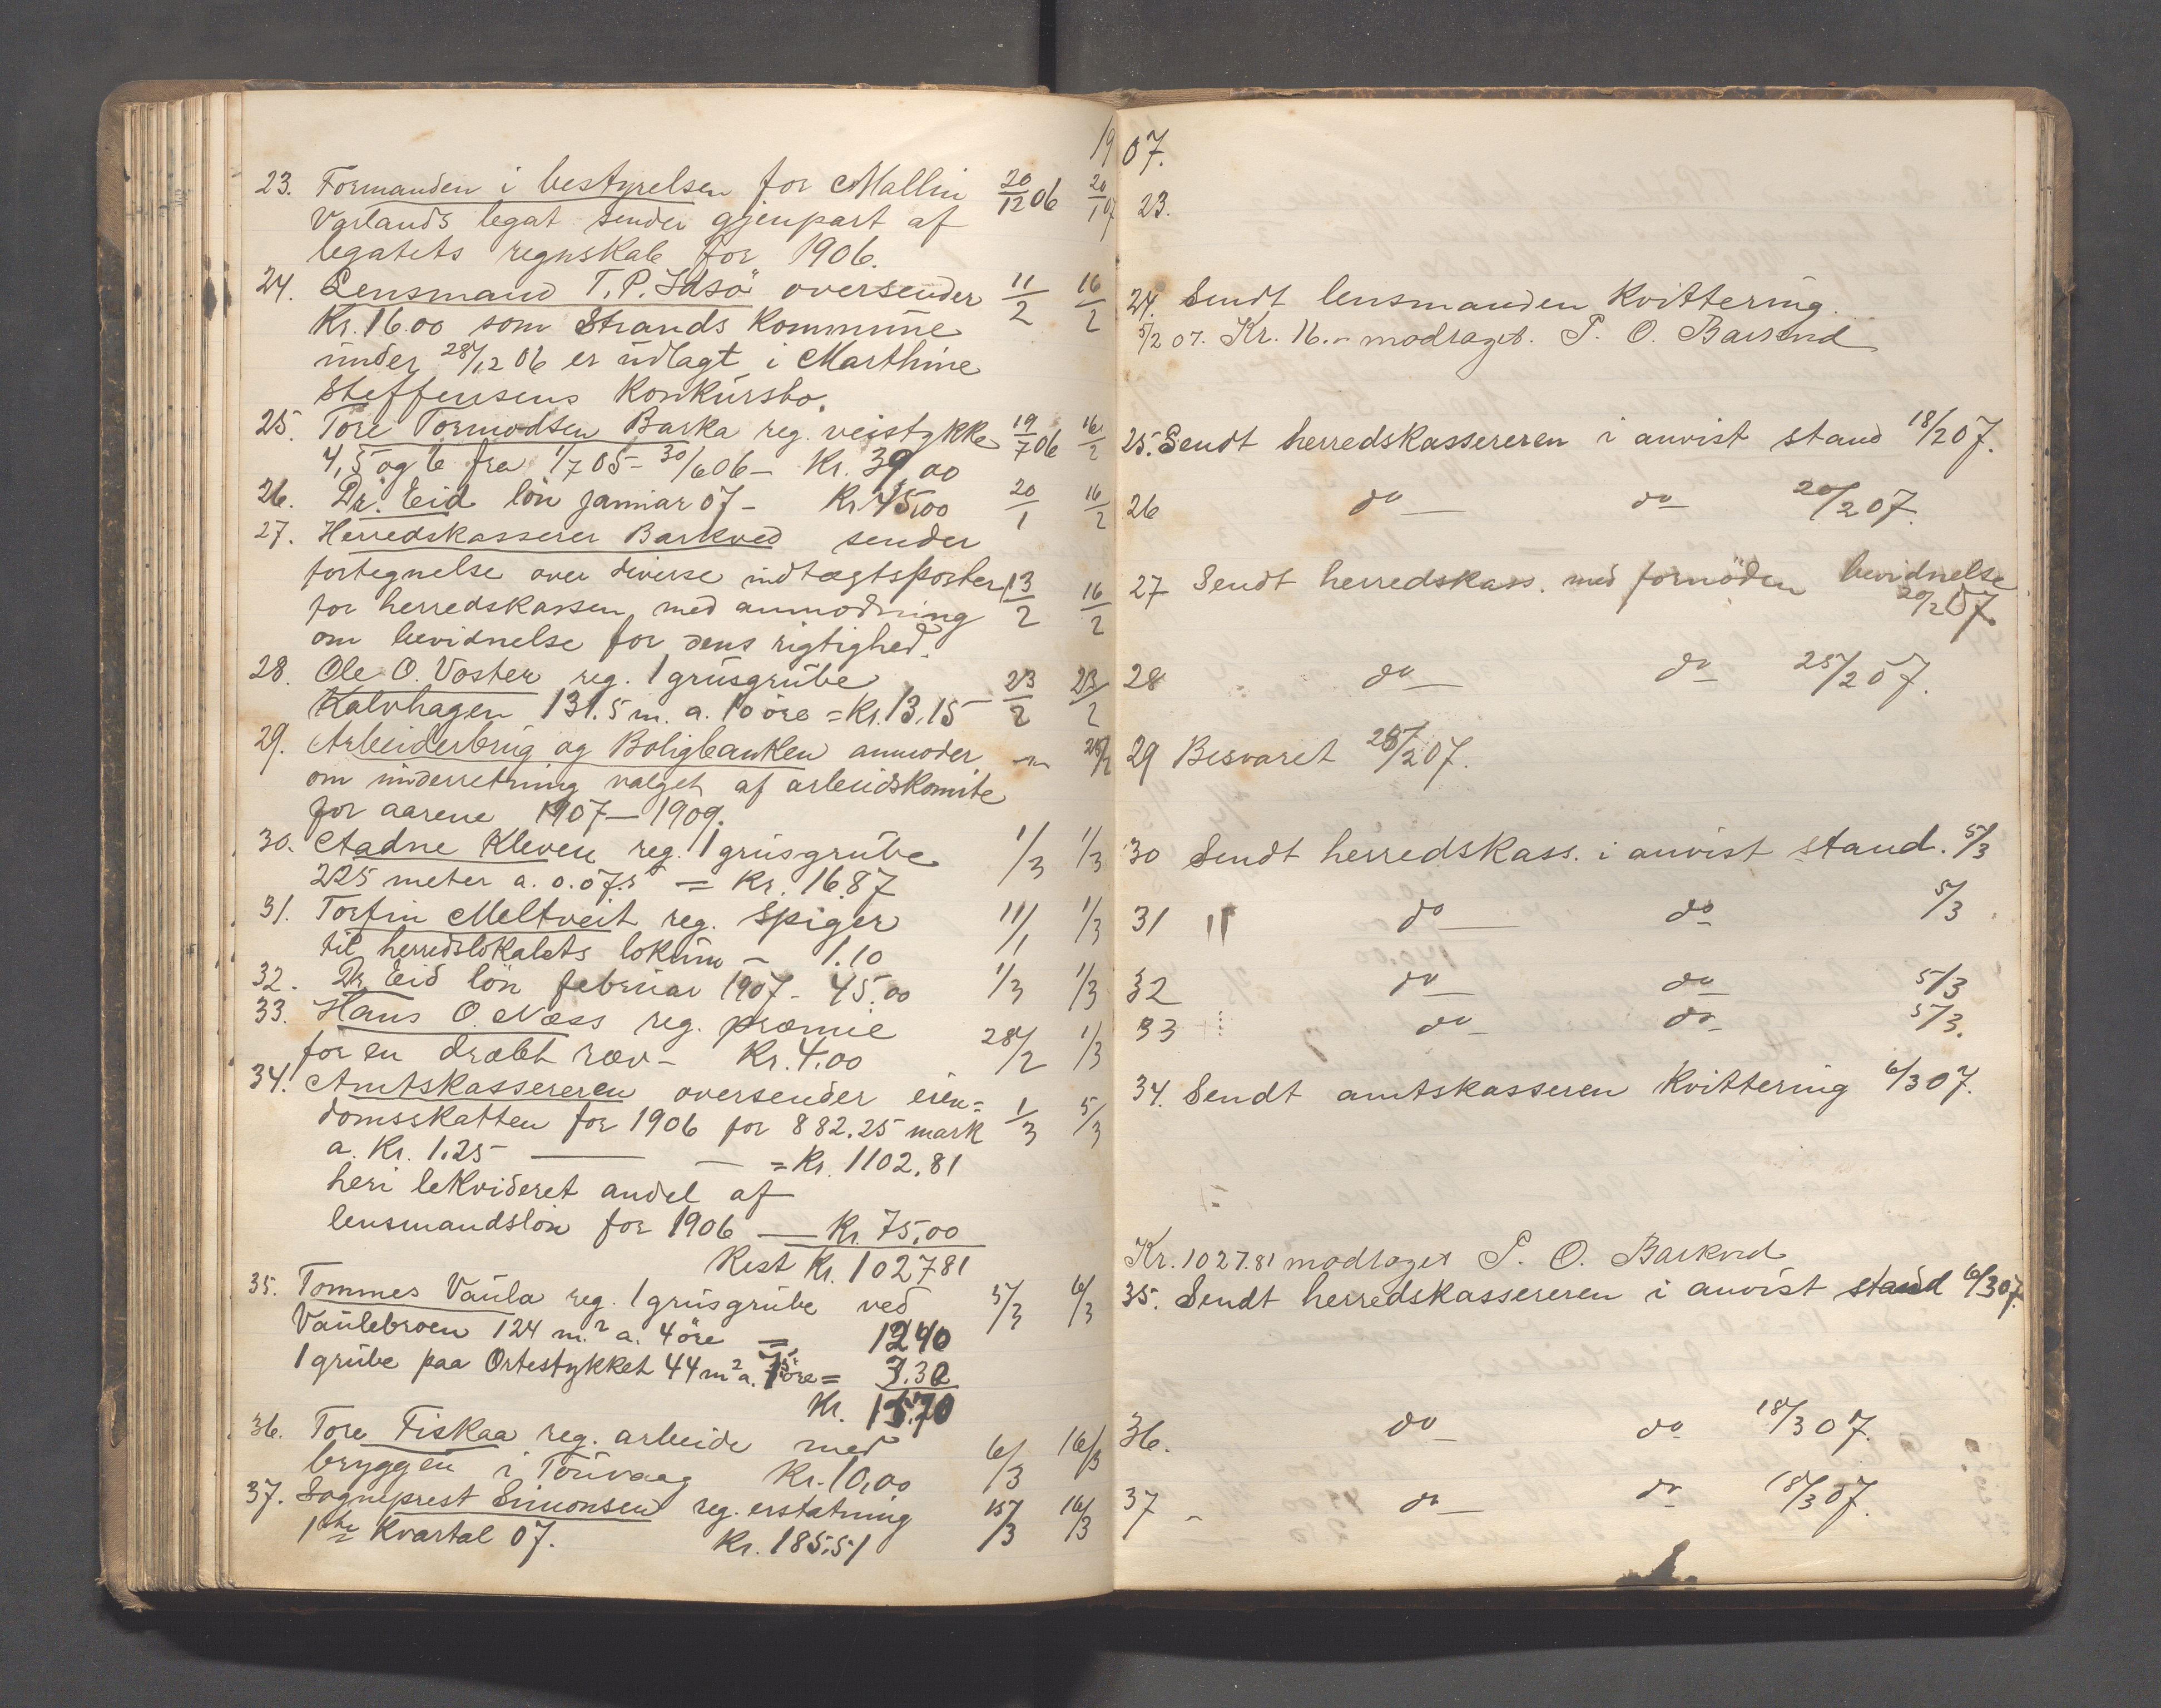 1907.
23. Formanden i bestyrelsen for Mallin 20/12 06 20/1 07
Varlands legat sender gjenpart af
legatets regnskab for 1906.
24. Lensmand T. P. Idsö oversender 11/2 16/2
Kr. 16.00 som Strands kommune
under 28/12 06 er udlagt i Marthine
Steffensens konkursbo.
25. Tore Tormodsen Barka reg. veistykke 19/7 06 16/2
4, 5 og 6 fra 1/7 05 - 30/6 06 - Kr. 39,00
26. Dr. Eid lön januar 07 - Kr. 45,00 20/1 16/2
27. Herredskasserer Barkved sender
fortegnelse over diverse indtægtsposter 13/2 16/2
for herredskassen, med anmodning
om bevidnelse for dens rigtighed.
28. Ole O. Voster reg. 1 grusgrube 23/2 23/2
Kalvhagen 131.5 m. a. 10 öre = Kr. 13.15
29. Arbeiderbrug og Boligbanken anmoder - " - 25/2
om underretning valget af arbeidskomite
for aarene 1907 - 1909.
30. Aadne Kleven reg. 1 grusgrube 1/3 1/3
225 meter a. 0.07.5 = Kr. 16.87
31. Torfin Meltveit reg. Spiger 11/1 1/3
til herredslokalets lokum - 1.10
32. Dr. Eid lön februar 1907 - 45.00 1/3 1/3
33. Hans O. Næss reg. præmie
for en dræbt ræv - Kr. 4.00 28/2 1/3
34. Amtskassereren oversender eien=
domsskatten for 1906 for 882.25 mark 1/3 5/3
a. Kr. 1.25 — — = Kr. 1102.81
heri lekvideret andel af
lensmandslön for 1906 — Kr. 75.00
Rest Kr. 1027 81
35. Tommes Vaula reg. 1 grusgrube ved 5/3 6/3
Vaulebroen 124 m.² a. 4 öre = 1240
1 grube paa Ortestykket 44 m² a. 7.5 öre = 3.30
Kr. 15.70
36. Tore Fiskaa reg. arbeide med 6/3 16/3
bryggen i Touvaag Kr. 10,00
37. Sogneprest Simonsen reg. erstatning 15/3 16/3
1ste kvartal 07. Kr. 185.51
23.
24. Sendt lensmanden kvittering.
5/2 07. Kr. 16.- modtaget. P. O. Barkved
25. Sendt herredskassereren i anvist stand 18/2 07.
26 do do 20/2 07.
27 Sendt herredskass. med fornöden bevidnelse
20/2 07.
28 do do 25/2 07.
29 Besvaret 26/2 07.
30 Sendt herredskass. i anvist stand. 5/3
31 " do do 5/3
32 do do 5/3
33 do do 5/3.
34. Sendt amtskasseren kvittering 6/3 07.
Kr. 1027.81 modtaget P. O. Barkved
35. Sendt herredskassereren i anvist stand 6/3 07.
36. do do 18/3 07.
37 do do 18/3 07.